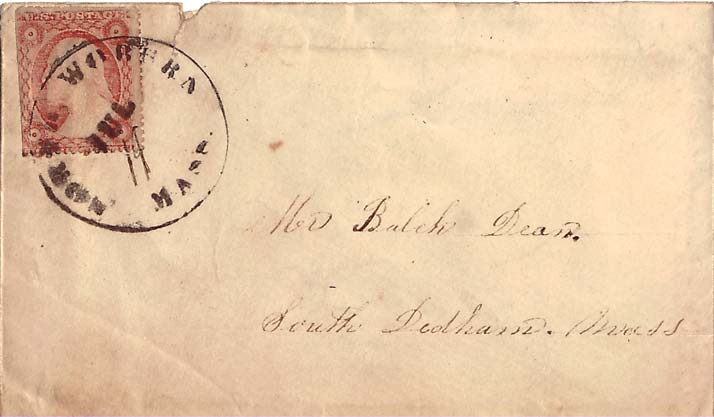 U.S. POSTAGE
NORTH WOBURN MASS.
JUL
Mr Balch Dean.
South Dedham. Mass